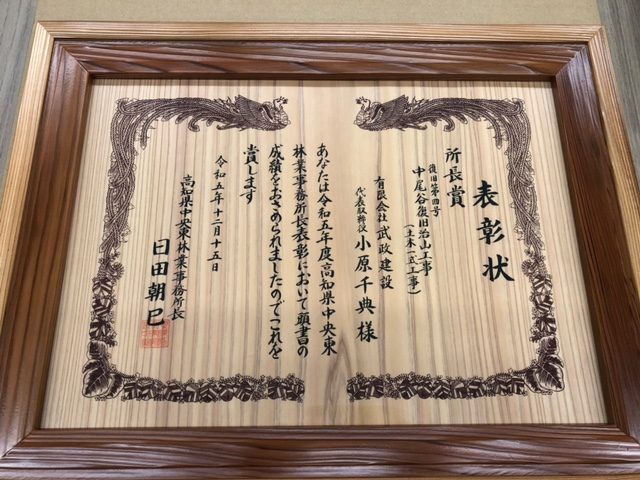 表彰状
所長賞
復旧第四号
中尾谷復旧治山工事
（土木一式工事）
有限会社武政建設
代表取締役 小原千典様
あなたは令和五年度高知県中央東
林業事務所長表彰において頭書の
成績をおさめられましたのでこれを
賞します
令和五年十二月十五日
高知県中央東林業事務所長
日田朝巳